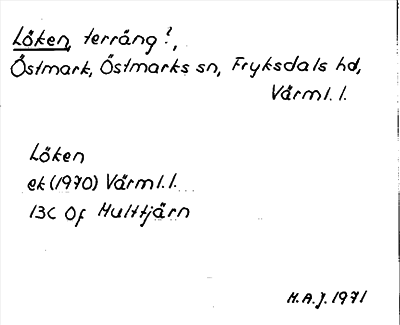 Löken, terräng?,
Östmark, Östmarks sn, Fryksdals hd,
Värml. l.
Löken
ek (1970) Värml. l.
13C 0f Hulttjärn
H.A.J. 1971